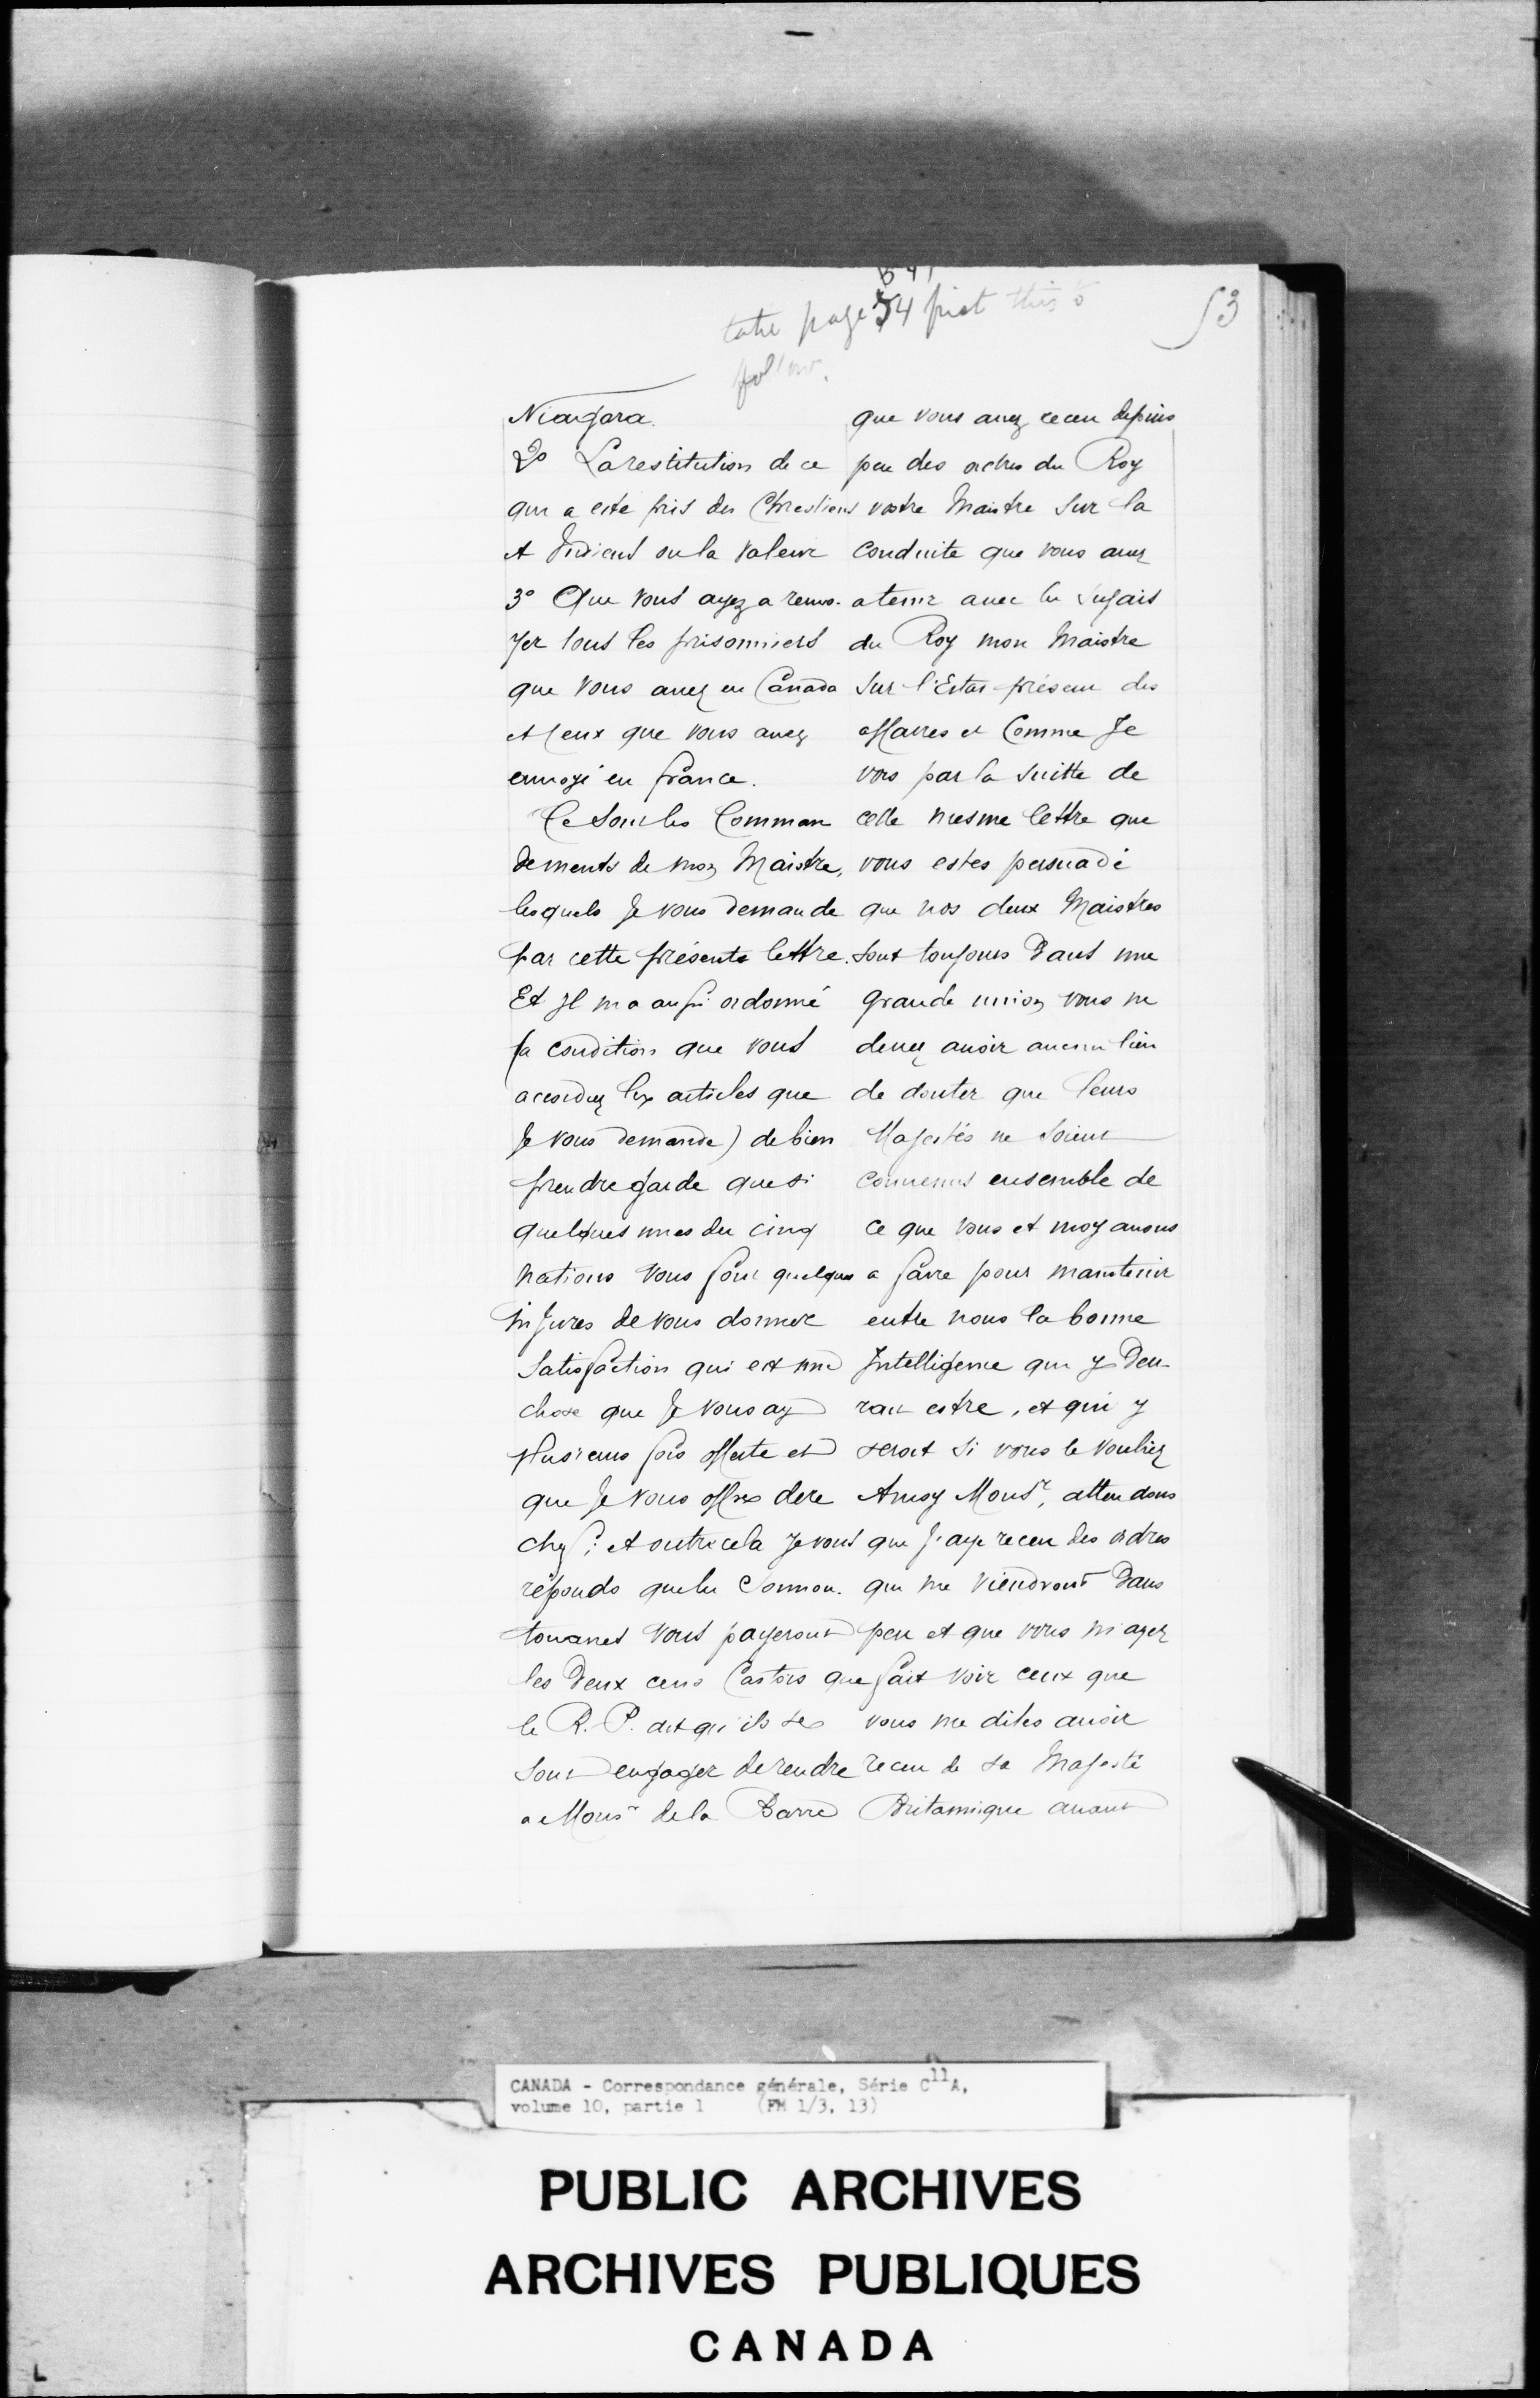 B 41
take page 54 first this to
follow.
53
Niagara.
2o La restitution de ce
qui a esté pris des Chrestiens
et Indiens ou la valeur
3o Que vous ayez a renvo-
yer tous les prisonniers
que vous avez en Canada
et ceux que vous avez
envoyé en france.
Ce sont les Comman
dements de mon Maistre,
lesquels Je vous demande
par cette présente lettre.
Et Jl m'a aussi ordonné
(a condition que vous
accordiez les articles que
Je vous demande) de bien
prendre garde que si
quelques unes des cinq
nations vous font quelques
injures de vous donner
satisfaction qui est une
chose que Je vous ay
plusieurs fois offerte et
que Je vous offre dere
chef: et outre cela Je vous
réponds que les Sonnon-
touanes vous payeront
les deux cens Castors que
le R. P. dit qu'ils se
sont engager de rendre
a Monsr de la Barre
que vous avez receu depuis
peu des ordres du Roy
vostre Maistre sur la
conduite que vous avez
a tenir avec les sujais
du Roy mon Maistre
sur l'Estat présent des
affaires et Comme Je
vois par la suitte de
cette mesme lettre que
vous estes persuadé
que nos deux Maistres
sont toujours dans une
grande union vous ne
devez avoir aucun lieu
de douter que leurs
Majestés ne soient
convenus ensemble de
ce que vous et moy avons
a faire pour maintenir
entre nous la bonne
Intelligence qui y dev-
rait estre, et qui y
seroit si vous le vouliez
Amoy Monsr, attendons
que J'aye receu des ordres
qui me viendront dans
peu et que vous m'ayez
fait voir ceux que
vous me dites avoir
receu de sa Majesté
Britannique avant
CANADA - Correspondance générale, Série C11A,
volume 10, partie 1 (FM 1/3, 13)
PUBLIC ARCHIVES
ARCHIVES PUBLIQUES
CANADA